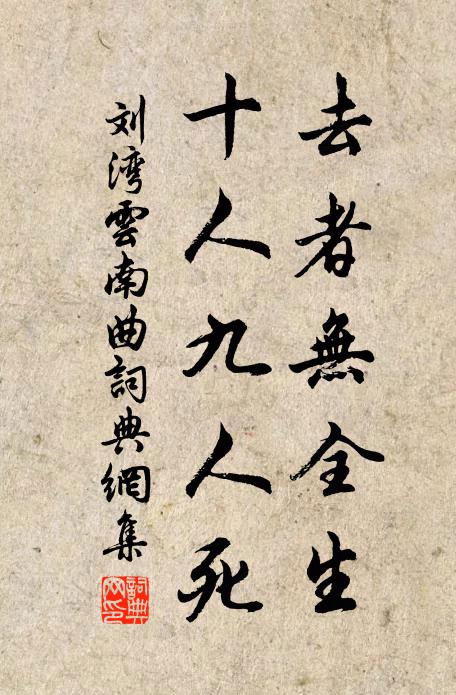 去者無全生
十人九人死
刘湾雲南曲詞典網集
詞典
网印